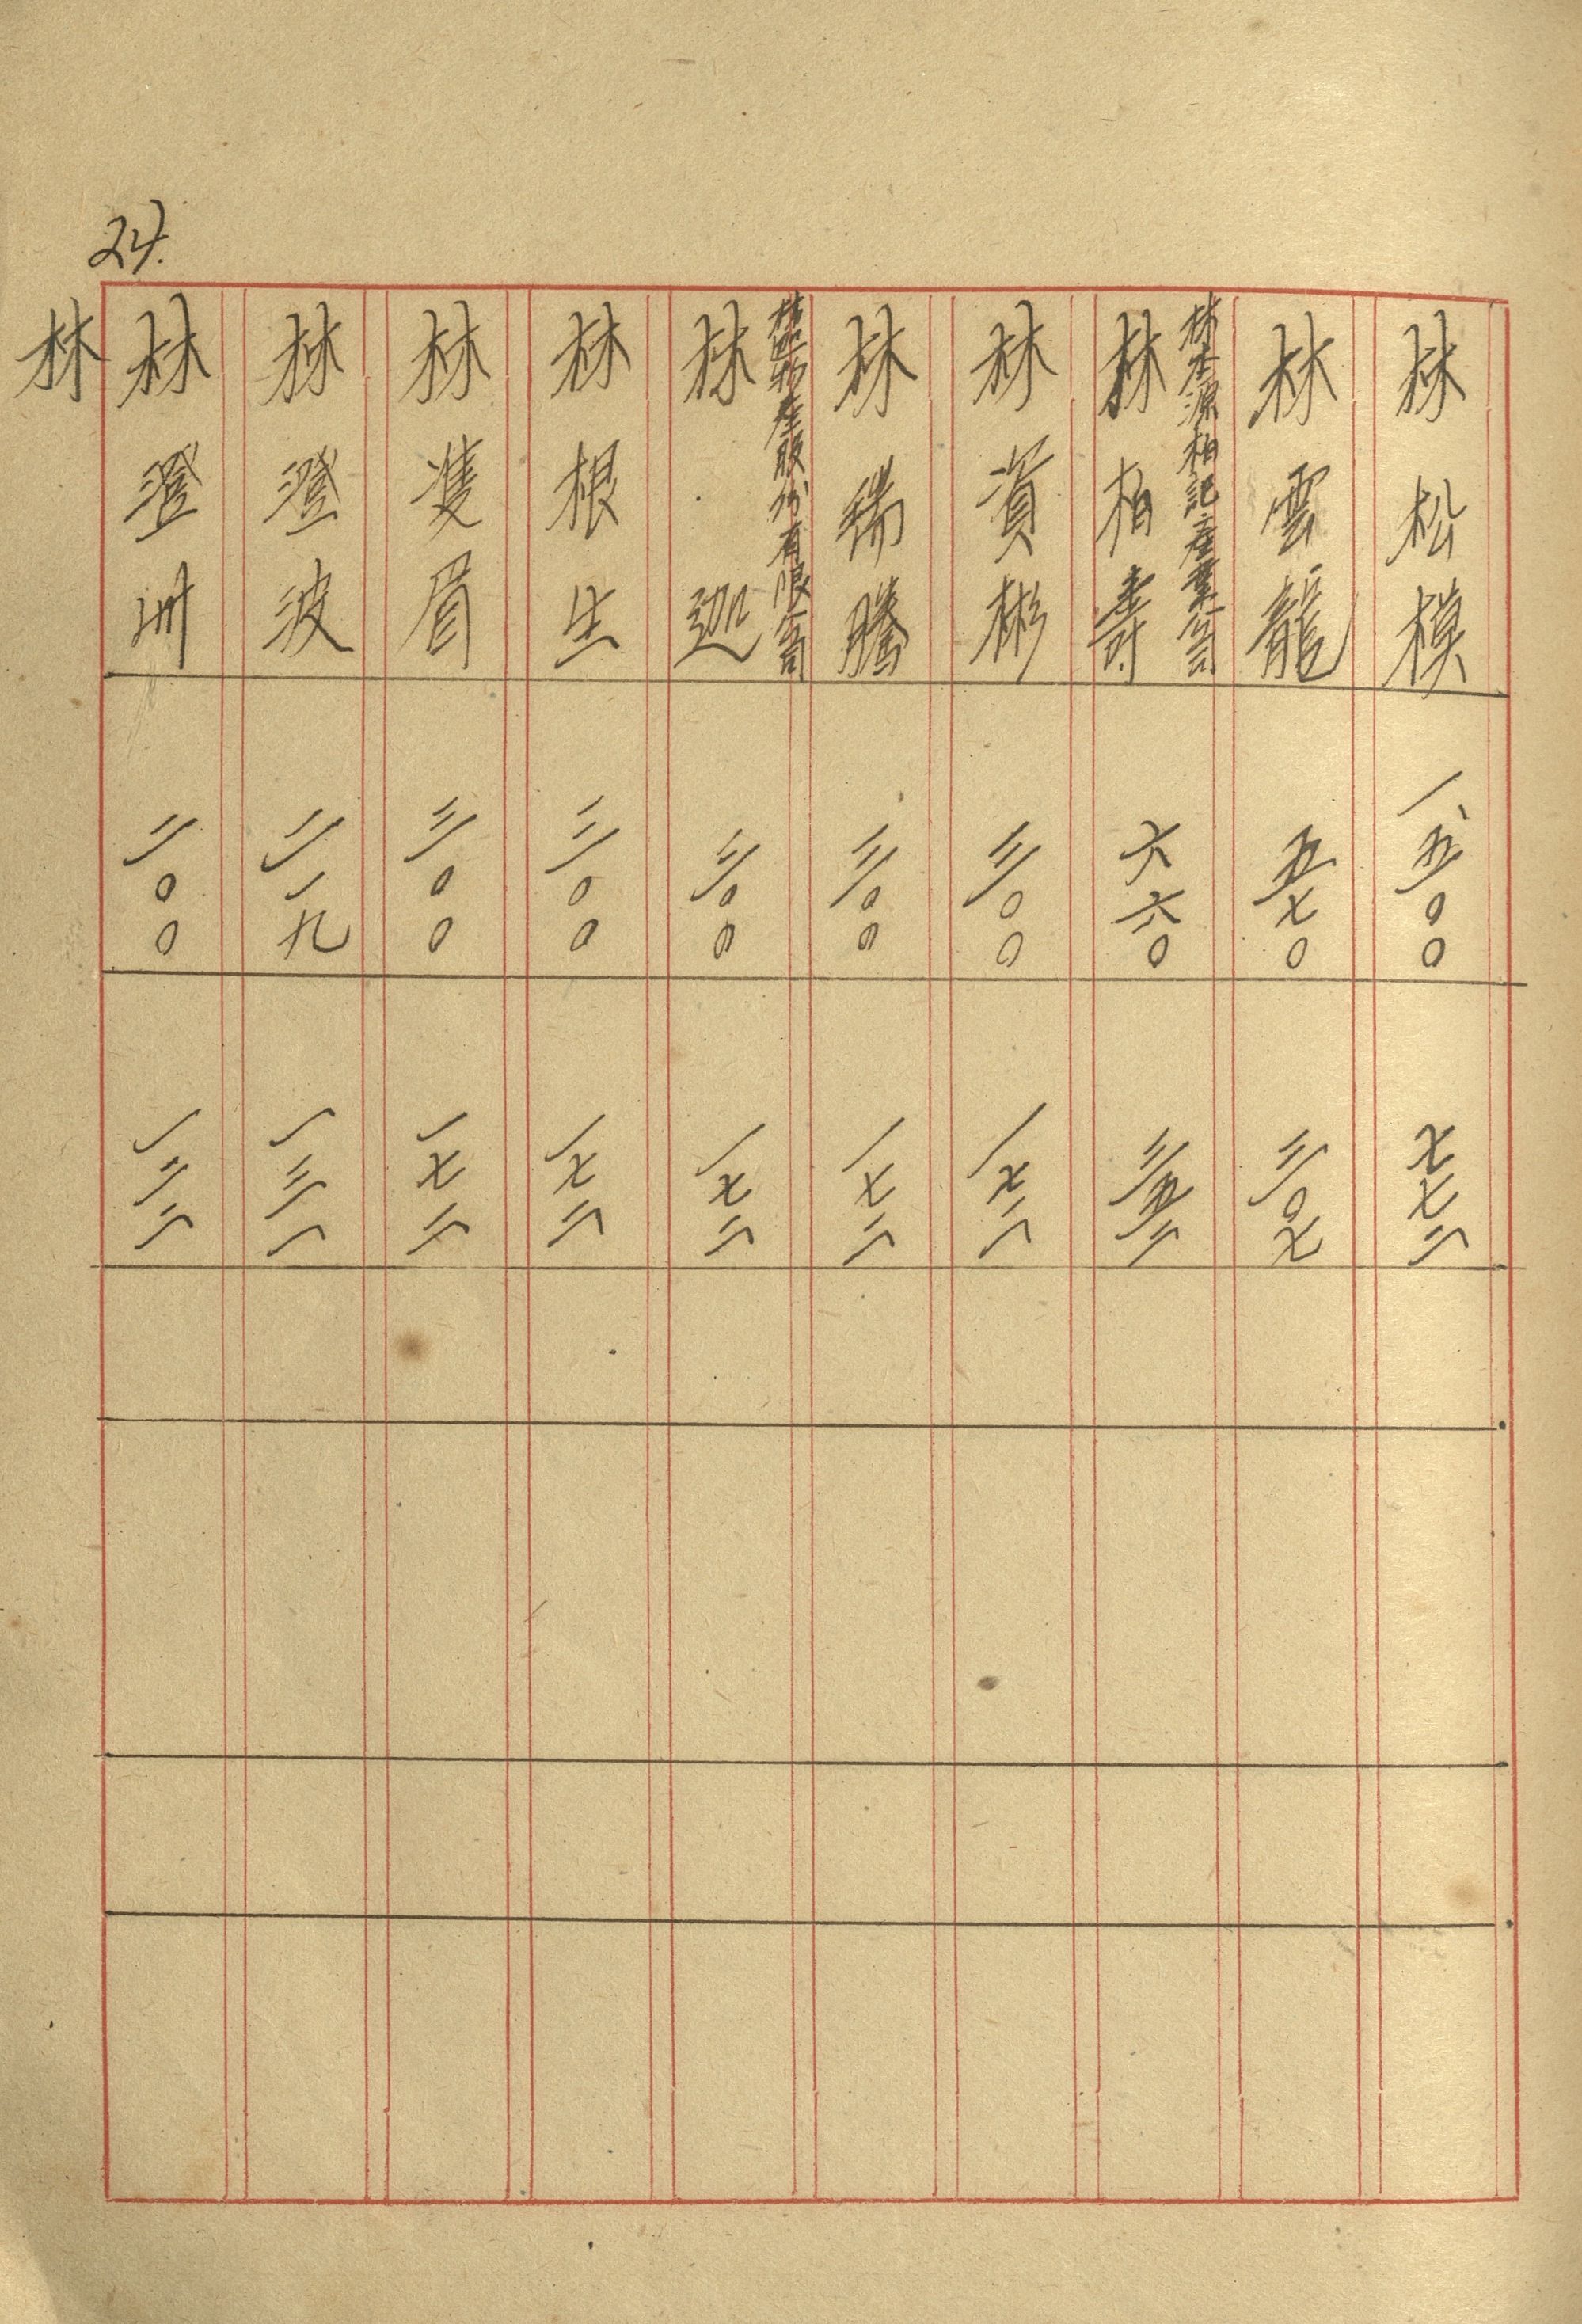 24.
林松模 一、五〇〇 七七二
林雲龍 五七〇 三〇七
林本源柏記產業公司
林柏壽 六六〇 三五三
林資彬 三〇〇 一七二
林瑞騰 三〇〇 一七二
產股份有限公司
林 三〇〇 一七二
林根生 三〇〇 一七二
林隻眉 三〇〇 一七二
林澄波 二一九 一三二
林澄洲 二〇〇 一三二
林